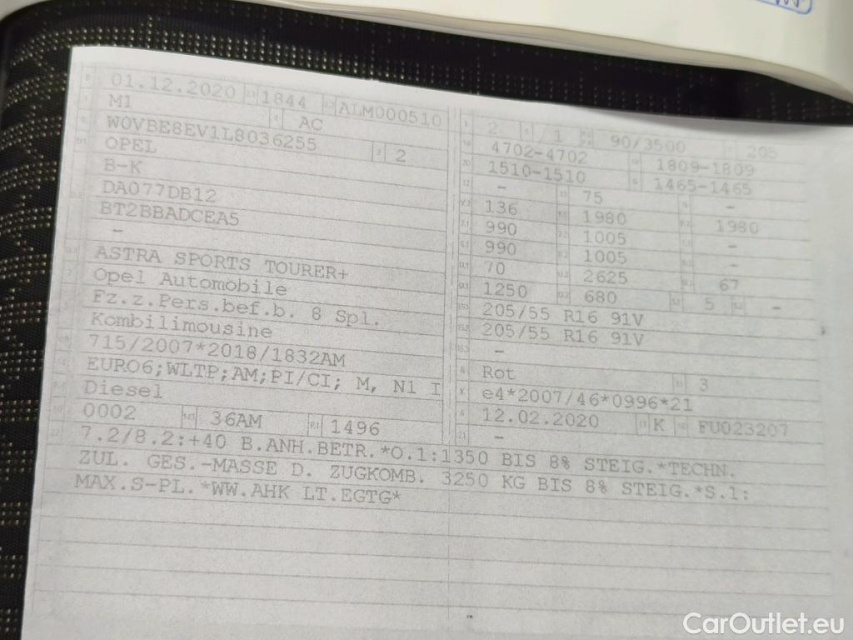 01.12.2020 1844 ALM000510
M1 AC
W0VBE8EV1L8036255 2
OPEL
B-K
DA077DB12
BT2BBADCEA5
-
ASTRA SPORTS TOURER+
Opel Automobile
Fz.z.Pers.bef.b. 8 Spl.
Kombilimousine
715/2007*2018/1832AM
EURO6;WLTP;AM;PI/CI; M, N1 I
Diesel
0002 36AM 1496
2 1 90/3500 205
4702-4702 1809-1809
1510-1510 1465-1465
- 75 -
136 1980 1980
990 1005 -
990 1005 -
70 2625 67
1250 680 5 -
205/55 R16 91V
205/55 R16 91V
-
Rot 3
e4*2007/46*0996*21
12.02.2020 K FU023207
-
7.2/8.2:+40 B.ANH.BETR.*O.1:1350 BIS 8% STEIG.*TECHN.
ZUL. GES.-MASSE D. ZUGKOMB. 3250 KG BIS 8% STEIG.*S.1:
MAX.S-PL.*WW.AHK LT.EGTG*
CarOutlet.eu